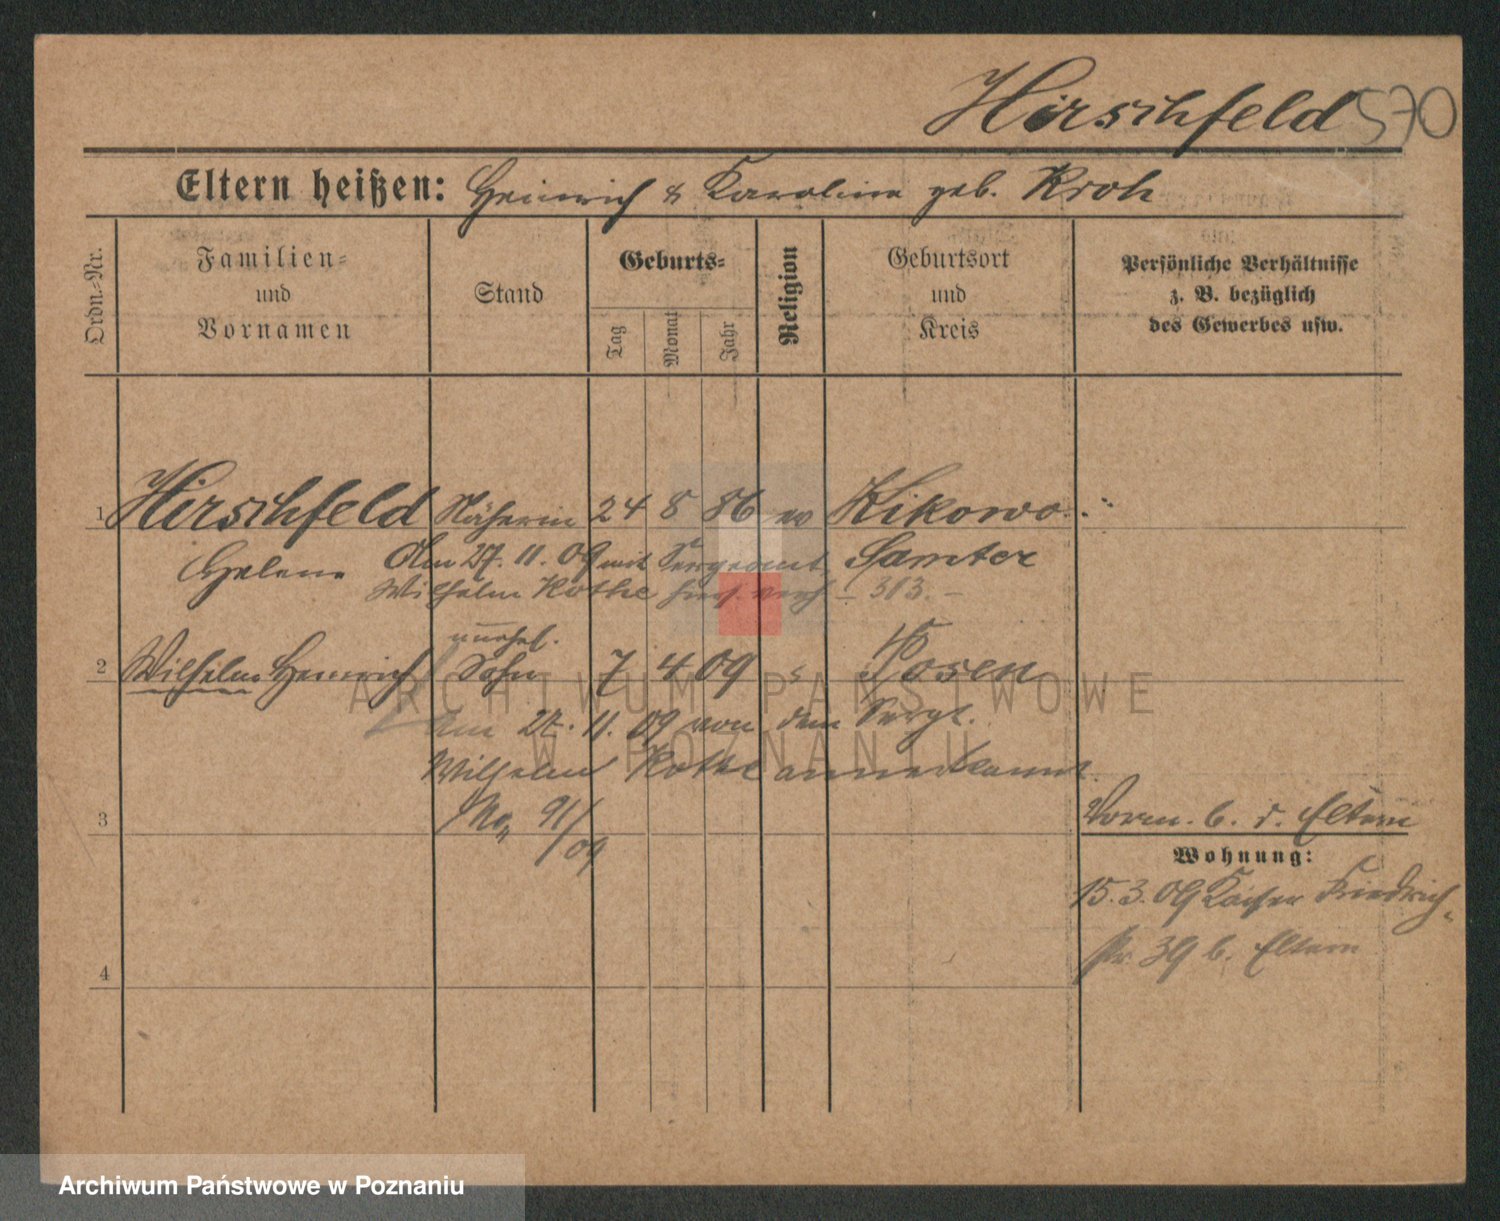 Hirschfeld 570
Eltern heißen: Heinrich & Karoline geb. Kroh
Ordn.-Nr.
Familien-
und
Vornamen
Stand
Geburts-
Tag
Monat
Jahr
Religion
Geburtsort
und
Kreis
Persönliche Verhältnisse
z. B. bezüglich
des Gewerbes usw.
1 Hirschfeld Näherin 24 8 86 ev Kikowo
Helene Am 27. 11. 09 mit Sergeant Samter
Wilhelm Kothe hier verh – 313. –
unehel.
2 Wilhelm Heinrich Sohn 7 4 09 Posen
Am 27. 11. 09 von dem Sergt.
Wilhelm Kothe anerkannt
91/09
3 Vorm. b. d. Eltern
Wohnung:
15. 3. 09 Kaiser Friedrich-
str. 39 b. Eltern
4
ARCHIWUM PAŃSTWOWE
W POZNANIU
Archiwum Państwowe w Poznaniu